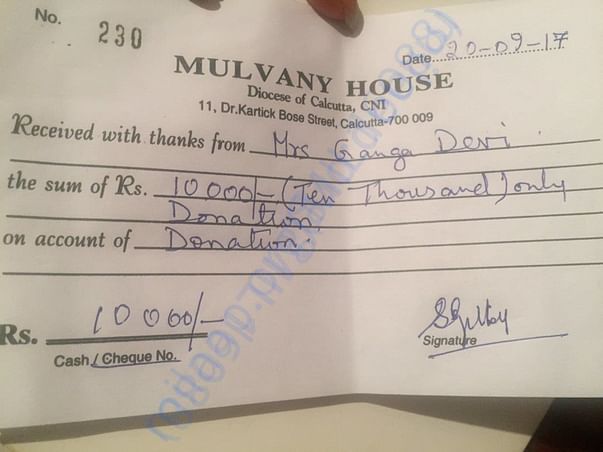 No. 230
Date 20-09-17
MULVANY HOUSE
Diocese of Calcutta, CNI
11, Dr.Kartick Bose Street, Calcutta-700 009
Received with thanks from Mrs Ganga Devi.
the sum of Rs. 10000/- (Ten Thousand) only
Donation.
on account of Donation.
Rs. 10000/-
Cash / Cheque No.
Signature